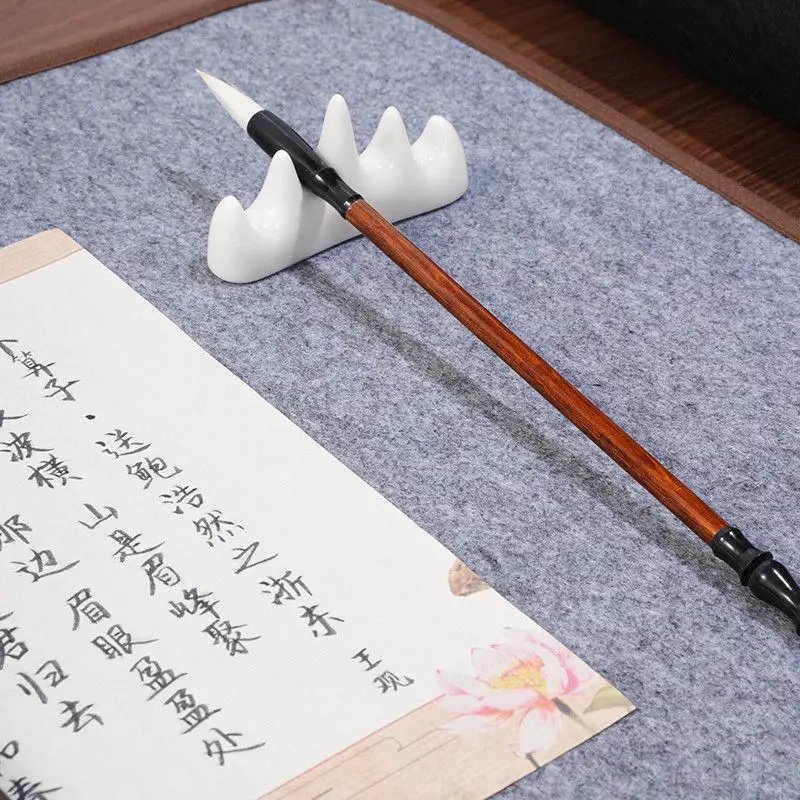 卜算子·送鲍浩然之浙东 王观
波横 山是眉峰聚
那边 眉眼盈盈处
君归去
和春